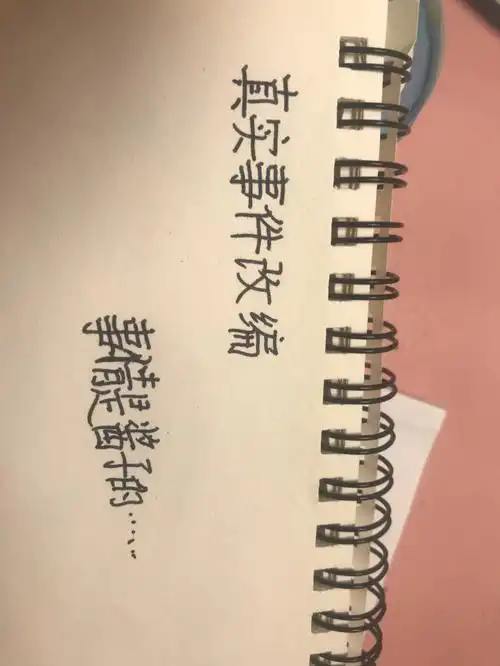 真实事件改编
事情是酱子的……